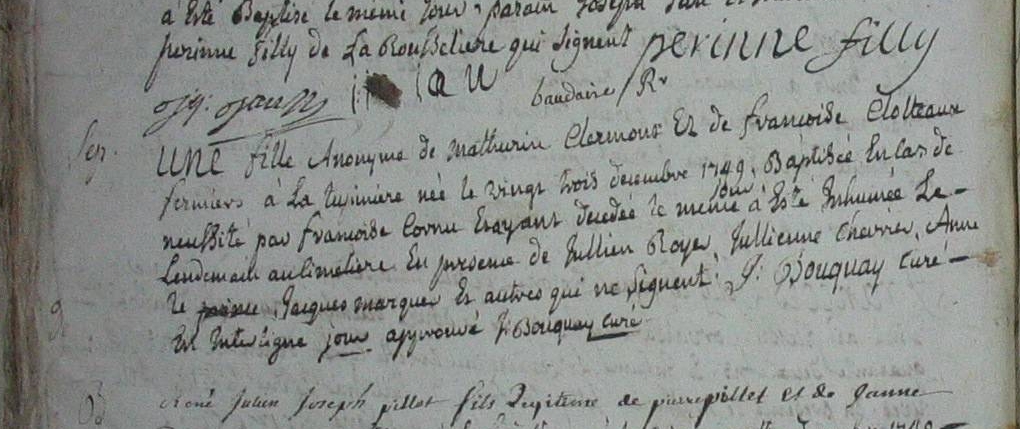 a Esté Baptisé le même jour parain Joseph
perinne filly de La Rousseliere qui signent perinne filly
baudaire Rr
Sep. UNE fille Anonyme de Mathurin Clermont Et de francoise Clotteaux
fermiers à La tupiniere née le vingt trois decembre 1749, Baptisée En Cas de
jour
neussité par francoise Cornu Et ayant decedée le meme à Esté Inhumée Le
Lendemain au Cimetiere En presence de Jullien Royer, Jullienne Chevrier, Anne
le Jacques marques Et autres qui ne signent. J: Bouquay curé
En Interligne jour approuvé J: Bouquay curé
René Julien Joseph pillet fils Legitime de pierre pillet et de Janne